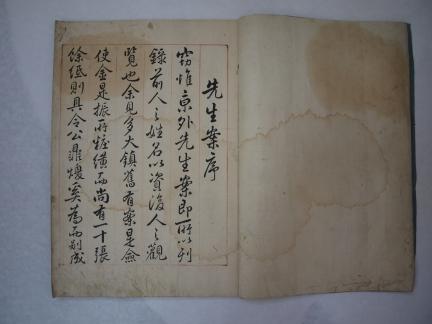 先生案序
窃惟京外先生案即所以列
錄前人之姓名以資後人之觀
覽也余見多大鎮舊有案是僉
使金是振所粧而尚有一十張
餘紙則具令公鼎煥奚為而剏成